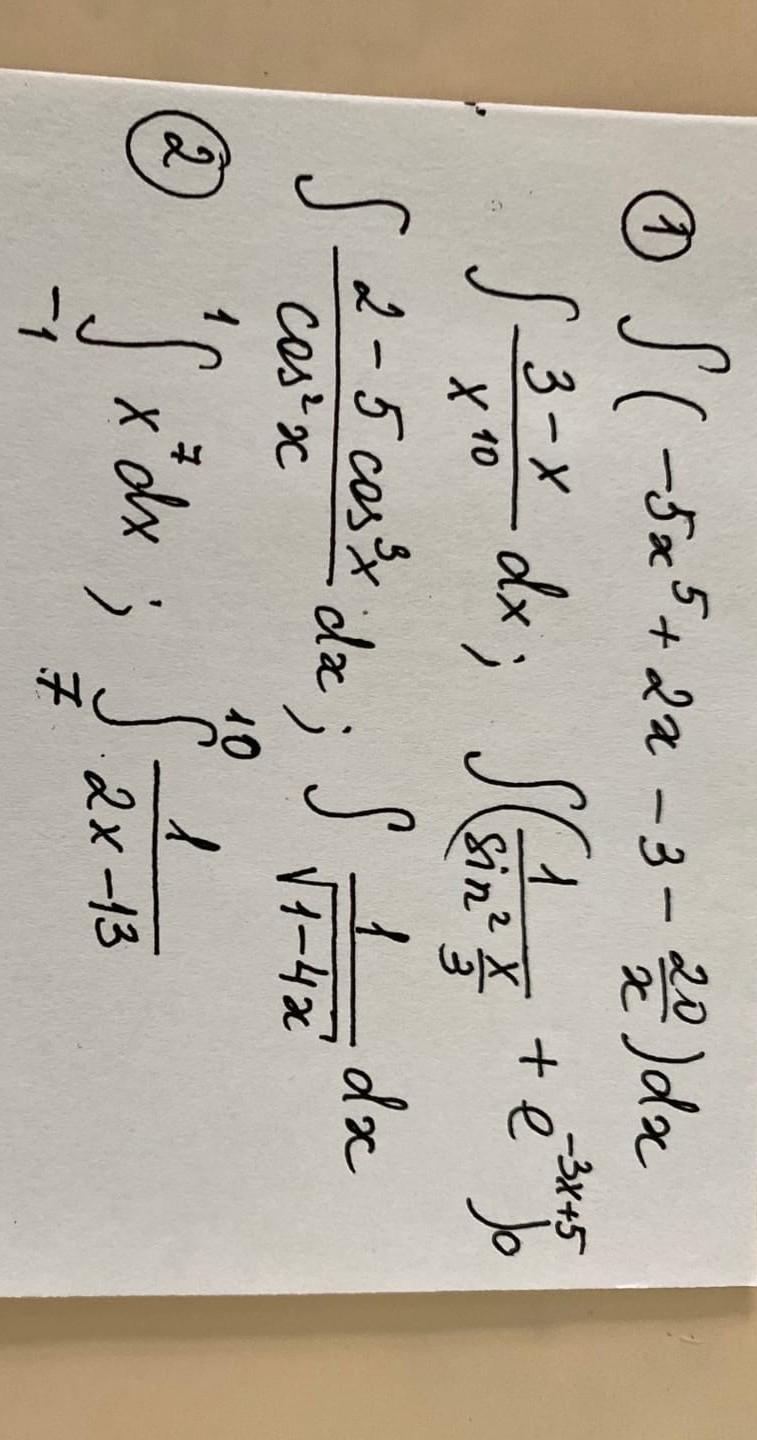 ① ∫(-5x⁵+2x-3-20/x)dx
∫ (3-x)/x¹⁰ dx; ∫(1/sin² x/3 + e⁻³ˣ⁺⁵)
∫ (2-5cos³x)/cos²x dx; ∫ 1/√(1-4x) dx
② ∫₋₁¹ x⁷dx; ∫₇¹⁰ 1/(2x-13)